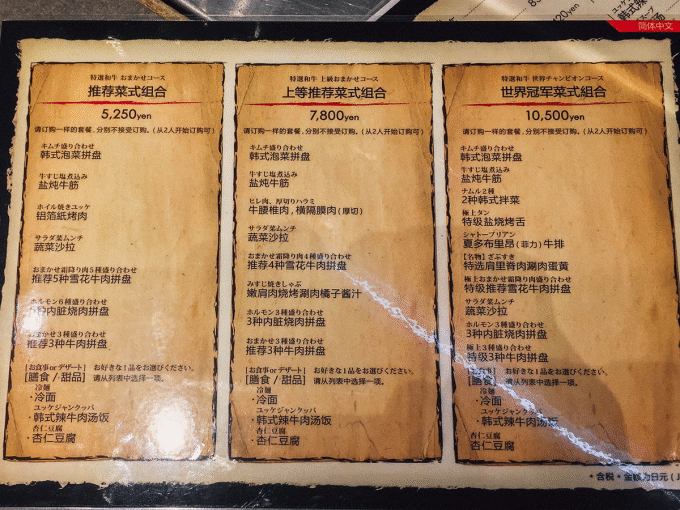 简体中文
特選和牛 おまかせコース
推荐菜式组合
5,250yen
请订购一样的套餐,分别不接受订购。(从2人开始订购可)
キムチ盛り合わせ
韩式泡菜拼盘
牛すじ塩煮込み
盐炖牛筋
ホイル焼きユッケ
铝箔紙烤肉
サラダ菜ムンチ
蔬菜沙拉
おまかせ霜降り肉5種盛り合わせ
推荐5种雪花牛肉拼盘
ホルモン6種盛り合わせ
种内脏烧肉拼盘
おまかせ3種盛り合わせ
推荐3种牛肉拼盘
[お食事orデザート] お好きな1品をお選びください。
[膳食 / 甜品] 请从列表中选择一项。
冷麺
・冷面
ユッケジャンクッパ
・韩式辣牛肉汤饭
杏仁豆腐
・杏仁豆腐
特選和牛 上級おまかせコース
上等推荐菜式组合
7,800yen
请订购一样的套餐,分别不接受订购。(从2人开始订购可)
キムチ盛り合わせ
韩式泡菜拼盘
牛すじ塩煮込み
盐炖牛筋
ヒレ肉、厚切りハラミ
牛腰椎肉,横隔膜肉(厚切)
サラダ菜ムンチ
蔬菜沙拉
おまかせ霜降り肉4種盛り合わせ
推荐4种雪花牛肉拼盘
みすじ焼きしゃぶ
嫩肩肉烧烤涮肉橘子酱汁
ホルモン3種盛り合わせ
3种内脏烧肉拼盘
おまかせ3種盛り合わせ
推荐3种牛肉拼盘
[お食事orデザート] お好きな1品をお選びください。
[膳食 / 甜品] 请从列表中选择一项。
冷麺
・冷面
ユッケジャンクッパ
・韩式辣牛肉汤饭
杏仁豆腐
・杏仁豆腐
特選和牛 世界チャンピオンコース
世界冠军菜式组合
10,500yen
请订购一样的套餐,分别不接受订购。(从2人开始订购可)
キムチ盛り合わせ
韩式泡菜拼盘
牛すじ塩煮込み
盐炖牛筋
ナムル2種
2种韩式拌菜
極上タン
特级盐烧烤舌
シャトーブリアン
夏多布里昂(菲力)牛排
【名物】ざぶすき
特选肩里脊肉涮肉蛋黄
極上おまかせ霜降り肉盛り合わせ
特级推荐雪花牛肉拼盘
サラダ菜ムンチ
蔬菜沙拉
ホルモン3種盛り合わせ
3种内脏烧肉拼盘
極上3種盛り合わせ
特级3种牛肉拼盘
お好きな1品をお選びください。
[膳食 请从列表中选择一项。
冷麺
・冷面
ユッケジャンクッパ
・韩式辣牛肉汤饭
杏仁豆腐
・杏仁豆腐
・含税・金额为日元